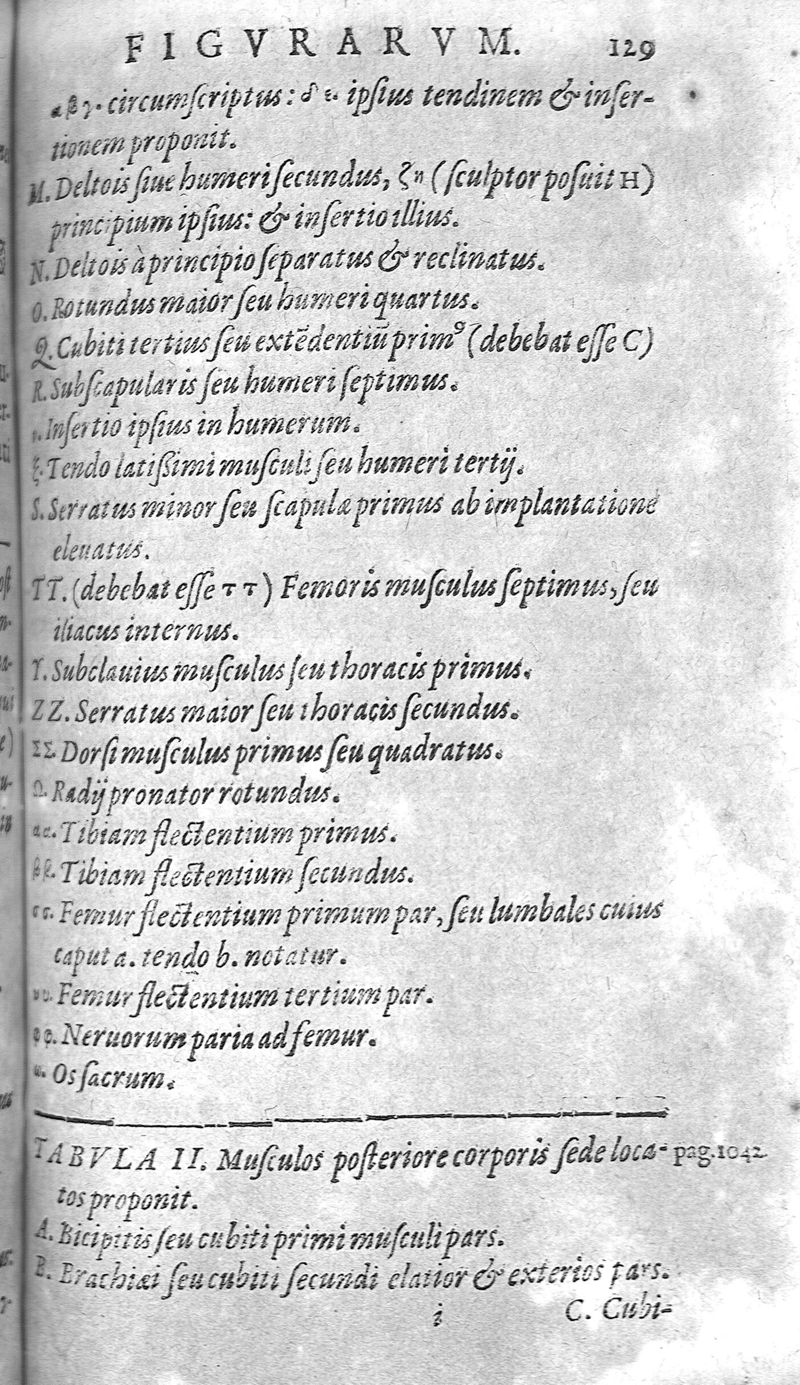 FIGVRARVM. 129
α β γ. circumſcriptus: δ ε. ipſius tendinem & inſer-
tionem proponit.
M. Deltois ſiue humeri ſecundus, ζ η (ſculptor poſuit H)
principium ipſius: & inſertio illius.
N. Deltois à principio ſeparatus & reclinatus.
O. Rotundus maior ſeu humeri quartus.
Q. Cubiti tertius ſeu extẽdentiũ primꝰ (debebat eſſe C)
R. Subſcapularis ſeu humeri ſeptimus.
Inſertio ipſius in humerum.
ξ. Tendo latiſſimi muſculi ſeu humeri tertij.
S. Serratus minor ſeu ſcapulæ primus ab implantatione
eleuatus.
TT. (debebat eſſe τ τ) Femoris muſculus ſeptimus, ſeu
iliacus internus.
Υ. Subclauius muſculus ſeu thoracis primus.
ZZ. Serratus maior ſeu thoracis ſecundus.
ΣΣ. Dorſi muſculus primus ſeu quadratus.
Ω. Radij pronator rotundus.
αα. Tibiam flectentium primus.
ββ. Tibiam flectentium ſecundus.
σσ. Femur flectentium primum par, ſeu lumbales cuius
caput a. tendo b. notatur.
υυ. Femur flectentium tertium par.
φφ. Neruorum paria ad femur.
ω. Os ſacrum.
TABVLA II. Muſculos poſteriore corporis ſede loca- pag. 1042.
tos proponit.
A. Bicipitis ſeu cubiti primi muſculi pars.
B. Brachiæi ſeu cubiti ſecundi elatior & exterior pars.
i C. Cubi-